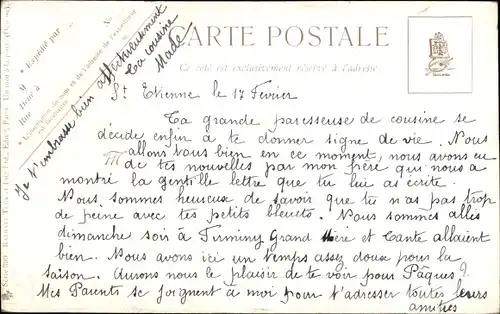 CARTE POSTALE
Ce côté est exclusivement réservé à l'adresse
Expédié par
M
Demt à
Rue
No
St Etienne le 17 Fevrier
Ta grande paresseuse de cousine se
décide enfin à te donner signe de vie. Nous
allons tous bien en ce moment, nous avons eu
de tes nouvelles par mon père qui nous a
montré la gentille lettre que tu lui as écrite.
Nous sommes heureuse de savoir que tu n'as pas trop
de peine avec tes petits bleuets. Nous sommes allés
dimanche soir à Firminy Grand Mère et Tante allaient
bien. Nous avons ici un temps assez doux pour la
saison. Aurons nous le plaisir de te voir pour Pâques ?
Mes Parents se joignent à moi pour t'adresser toutes leurs
amitiés
Je t'embrasse bien affectueusement
Ta cousine
Made